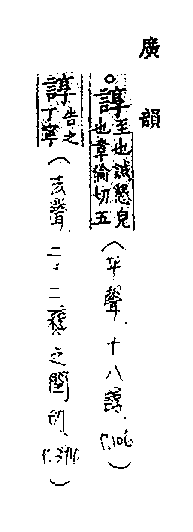 廣韻
諄至也誠懇皃也章倫切五（平聲．十八諄．P.106）
諄告之丁寧（去聲．二十二稕之閏切．P.394）